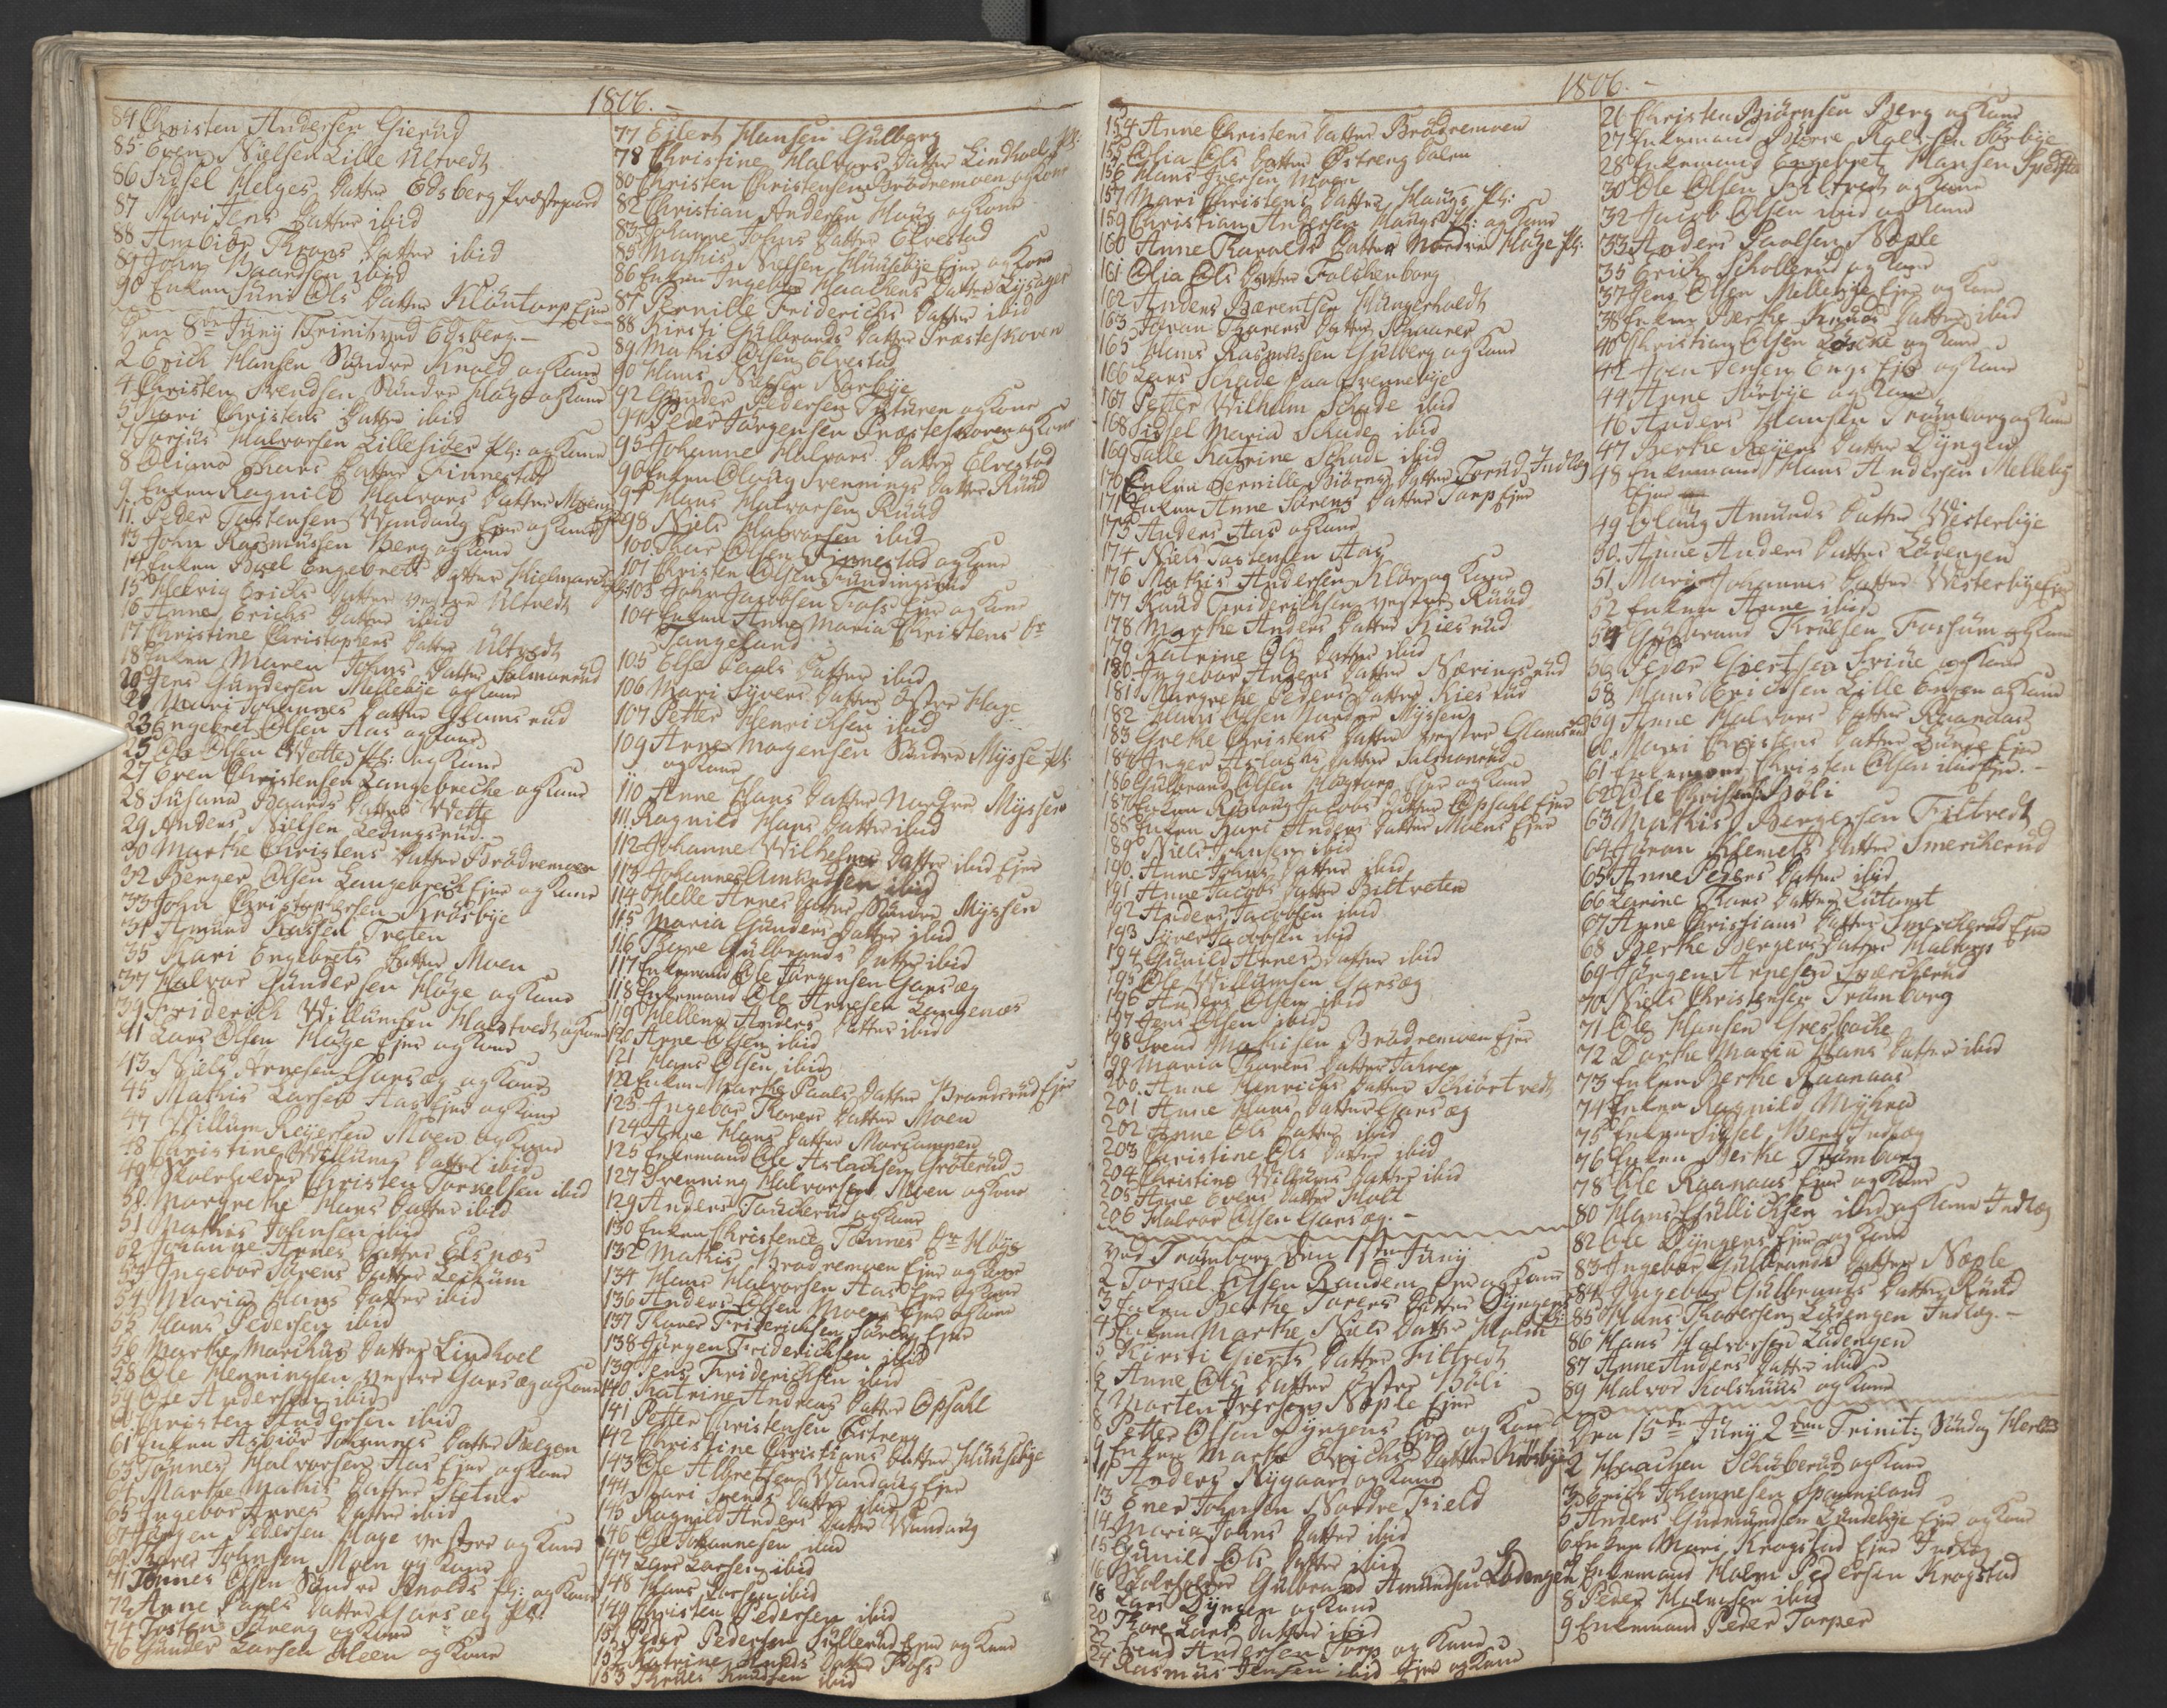 1806.
84 Christen Andersen Gierud
85 Even Nielsen Lille Ultvedt
86 Sidsel Helges Datter Edsberg Præstegaard
87 Kari Jens Datter ibid
88 Ambiør Trons Datter ibid
89 John Baardsen ibid
90 Enken Siuni Ols Datter Kluntorp Ejer
Den 8de Juny Trinit: ved Edsberg.
2 Erich Hansen Søndre Knold og Kone
4 Christen Svendsen Søndre Hage og Kone
5 Kari Christens Datter ibid
7 Torjus Halvorsen Lillesiøes Pl: og Kone
8 Oliana Thors Datter Finnestad
9 Enken Ragnild Halvors Datter Moens
11 Peder Tostensen Wandaug Ejer og Kone
13 John Rasmussen Berg og Kone
14 Enken Boel Engebrets Datter
15 Helvig Erichs Datter vestre Ultvedt
16 Anne Erichs Datter ibid
17 Christine Christophers Datter Ultvedt
18 Enken Maren Johns Datter Salmonrud
20 Jens Gundersen Mellebye og Kone
21 Mari Johannes Datter Glamsrud
23 Engebret Olsen Aas og Kone
25 Ole Olsen Wette Pl: og Kone
27 Even Christensen Langebreche og Kone
28 Susana Baards Datter Wette
29 Anders Nielsen Ledingsrud
30 Marthe Christens Datter Brødremoen
32 Berger Olsen Langebrech Ejer og Kone
33 John Christophersen Kraasbye
34 Amund Hassen Treten
35 Kari Engebrets Datter Moen
37 Halvor Gundersen Hage og Kone
39 Friderich Willumsen Haltvedt og Kone
41 Lars Olsen Hage Ejer og Kone
43 Niels Arnesen Garsæg og Kone
45 Mathis Larsen Aas Ejer og Kone
47 Willum Reyersen Moen og Kone
48 Christine Willums Datter ibid
49 Skoleholder Christen Torkelsen ibid
50 Margrethe Hans Datter ibid
51 Mathis Johnsen ibid
52 Johanne Arnes Datter Elsnæs
53 Ingebor Sørens Datter Lechum
54 Maria Hans Datter ibid
55 Hans Pedersen ibid
56 Marthe Marchus Datter Lindhoel
58 Ole Henningsen vestre Garsæg og Kone
59 Ole Andersen ibid
60 Christen Andersen ibid
61 Enken Asbiør Johannes Datter Helgen
63 Tønnes Halvorsen Aas Ejer og Kone
64 Marthe Mathis Datter
65 Ingebor Arnes Datter ibid
67 Jørgen Pedersen Hage vestre og Kone
69 Thore Johnsen Moen og Kone
71 Tønnes Olsen Søndre Knolds Pl: og Kone
72 Anne Povels Datter Garsæg Pl:
74 Tosten Saxeng og Kone
76 Gunder Larsen Aleen og Kone
77 Eilert Hansen Gulberg
78 Christine Halvors Datter Lindhoels Pl:
80 Christen Christensen Brødremoen og Kone
82 Christian Andersen Haug og Kone
83 Johanne Johns Datter Elvestad
85 Mathis Nielsen Huusebye Ejer og Kone
86 Enken Ingebor Haachens Datter Lysager
87 Pernille Friderichs Datter ibid
88 Kirsti Gulbrands Datter Præsteskoven
89 Mathis Olsen Elvestad
90 Hans Nielsen Narbye
92 Gunder Pedersen Futuren og Kone
94 Peder Jørgensen Præsteskoven og Kone
95 Johanne Halvors Datter Elvestad
96 Enken Olaug Svennings Datter Ruud
97 Hans Halvorsen Ruud
98 Niels Halvorsen ibid
100 Thor Olsen Finnestad og Kone
101 Christen Olsen
103 John Jacobsen Fos Ejer og Kone
104 Enken Anne Maria Christens Dr
Tangeland
105 Else Povels Datter ibid
106 Mari Syvers Datter østre Hage
107 Petter Henrichsen ibid
109 Arne Mogensen Søndre Mysse Pl:
og Kone
110 Anne Hans Datter Nordre Myssen
111 Ragnild Hans Datter ibid
112 Johanne Wilhelms Datter ibid Ejer
113 Johannes Amundsen ibid
114 Helle Arnes Datter Søndre Myssen
115 Maria Gunders Datter ibid
116 Thore Gulbrands Datter ibid
117 Enkemand Ole Jørgensen Garsæg
118 Enkemand Ole Arnesen Langenæs
119 Hellene Anders Datter ibid
120 Arne Olsen ibid
121 Hans Olsen ibid
122 Enken Marthe Povels Datter Brandsrud Ejer
123 Ingebor Thores Datter Moen
124 Anne Hans Datter
125 Enkemand Ole Aslachsen Grøterud
127 Svenning Halvorsen Moen og Kone
129 Anders Tancherud og Kone
130 Enken Christence Tønnes Dr Høys
132 Mathis Brødremoen Ejer og Kone
134 Hans Halvorsen Aas Ejer og Kone
136 Anders Olsen Moen Ejer og Kone
137 Thores Friderichsen Saxeng Ejer
138 Jørgen Friderichsen ibid
139 Jens Friderichsen ibid
140 Katrine Andreas Datter Opsahl
141 Petter Christensen Østreng
142 Christine Christians Datter Huusebye
143 Ole Albretsen Wandaug Ejer
144 Mari Svends Datter ibid
145 Ragnild Anders Datter Wandaug
146 Ole Johannesen ibid
147 Lars Larsen ibid
148 Hans Larsen ibid
149 Christen Pedersen ibid
151 Peder Pedersen Sullerud Ejer og Kone
152 Katrine Knuds Datter Fos
153 Truls Knudsen ibid
1806.
154 Anne Christens Datter Brødremoen
155 Olia Ols Datter Østreng Dalen
156 Hans Iversen Moen
157 Mari Christens Datter Haugs Pl:
159 Christian Andersen Haugs Pl: og Kone
160 Anne Haralds Datter Nordre Hage Pl:
161 Olia Ols Datter Falchenborg
162 Anders Bærentsen Hungerholdt
163 Joran Thores Datter Skaarer
165 Hans Rasmussen Gulberg og Kone
166 Lars Schade paa Svennebye
167 Petter Wilhelm Schade ibid
168 Sidsel Maria Schade ibid
169 Talle Katrine Schade ibid
170 Enken Pernille Biørns Datter Torud Indlæg
171 Enken Anne Sørens Datter Torp Ejer
173 Anders Aas og Kone
174 Niels Tostensen Aas
176 Mathis Andersen Kløv og Kone
177 Knud Friderichsen vestre Ruud
178 Marthe Anders Datter Kiesrud
179 Katrine Ols Datter ibid
180 Ingebor Anders Datter Næringsrud
181 Margrethe Peders Datter Kiesrud
182 Hans Olsen Nordre Myssen
183 Grethe Christens Datter vestre Glamsrud
184 Inger Aslachs Datter Salmonrud
186 Gulbrand Olsen Hagtorp Ejer og Kone
187 Enken Rønnaug Jacobs Datter Opsahl Ejer
188 Enken Kari Anders Datter Moens Ejer
189 Niels Johnsen ibid
190 Anne Johns Datter ibid
191 Anne Jacobs Datter Biltveten
192 Anders Jacobsen ibid
193 Syver Jacobsen ibid
194 Gunild Arnes Datter ibid
195 Ole Willumsen Garsæg
196 Anders Olsen ibid
197 Jens Olsen ibid
198 Svend Mathisen Brødremoen Ejer
199 Maria Thores Datter Jahren
200 Anne Henrichs Datter Schiørtvedt
201 Anne Hans Datter Garsæg
202 Anne Ols Datter ibid
203 Christine Ols Datter ibid
204 Christine Willums Datter ibid
205 Anne Evens Datter Holt
206 Halvor Olsen Garsæg.
Ved Trømborg den 1ste Juny
2 Torkel Olsen Randem Ejer og Kone
3 Enken Berthe Torers Datter Dyngen
4 Enken Marthe Niels Datter Holm
5 Kirsti Gierts Datter Filtvedt
6 Anne Ols Datter østre Bøli
7 Morten Iversen Næple Ejer
8 Petter Olsen Dyngens Ejer og Kone
9 Enken Marthe Erichs Datter
11 Anders Nygaard og Kone
13 Ener Johnsen Nordre Field
14 Maria Johns Datter ibid
15 Gunild Ols Datter ibid
16 Skoleholder Gulbrand Amundsen Lødengen
18 Lars Dyngen og Kone
20 Thore Lars Datter ibid
22 Svend Andersen Torp og Kone
24 Rasmus Jensen ibid Ejer og Kone
26 Christen Biørnsen Berg og Kone
27 Enkemand Børre Rolvsen Sørbye
28 Enkemand Engebret Hansen
30 Ole Olsen Filtvedt og Kone
32 Jacob Olsen ibid og Kone
33 Anders Povelsen Næple
35 Erich Schollerud og Kone
37 Jens Olsen Mellebye Ejer og Kone
38 Enken Berthe Knuds Datter ibid
40 Christian Olsen Løsche og Kone
42 Joen Jensen Engs Ejer og Kone
44 Arne Sørbye og Kone
46 Anders Hansen Trømborg og Kone
47 Berthe Reyers Datter Dyngen
48 Enkemand Hans Andersen Melleby
Ejer
49 Olaug Amunds Datter Westerbye
50 Anne Anders Datter Lødengen
51 Mari Johannes Datter Westerbye Ejer
52 Enken Anne ibid
54 Gulbrand Trulsen Fossum og Kone
56 Peder Giertsen Friue og Kone
58 Hans Erichsen Lille Engen og Kone
59 Anne Halvors Datter Raanaas
60 Mari Christens Datter Ejer
61 Enkemand Christen Olsen ibid Ejer.
62 Ole Christensen Bøli
63 Mathis Bergersen Filtvedt
64 Joran Klemets Datter Smerkerud
65 Anne Peders Datter ibid
66 Karine Thors Datter Lutangt
67 Anne Christians Datter Smerkerud Ejer
68 Berthe Bergers Datter Haltorp
69 Jørgen Arnesen Sværkerud
70 Niels Christensen Trømborg
71 Ole Hansen Gresbache
72 Dorthe Maria Hans Datter ibid
73 Enken Berthe Raanaas
74 Enken Ragnild Myhra
75 Enken Sidsel Berg Indlæg
76 Enken Berthe Trømborg
78 Ole Raanaas Ejer og Kone
80 Hans Gullichsen ibid og Kone Indlæg
82 Ole Dyngens Ejer og Kone
83 Ingebor Gulbrands Datter Næple
84 Ingebor Gulbrands Datter Ruud
85 Hans Thoresen Lødengen Indlæg.
86 Hans Halvorsen Lødengen
87 Anne Anders Datter ibid
89 Halvor Kolshuus og Kone
Den 15de Juny 2den Trinit: Søndag Herland
2 Haachen Schuberud og Kone
3 Erich Johannesen Spanniland
5 Anders Gudmundsen Lundebye Ejer og Kone
6 Enken Mari Krogstad Ejer Indlæg
7 Enkemand Holm Pedersen Krogstad
8 Peder Holmsen ibid
9 Enkemand Peder Torper